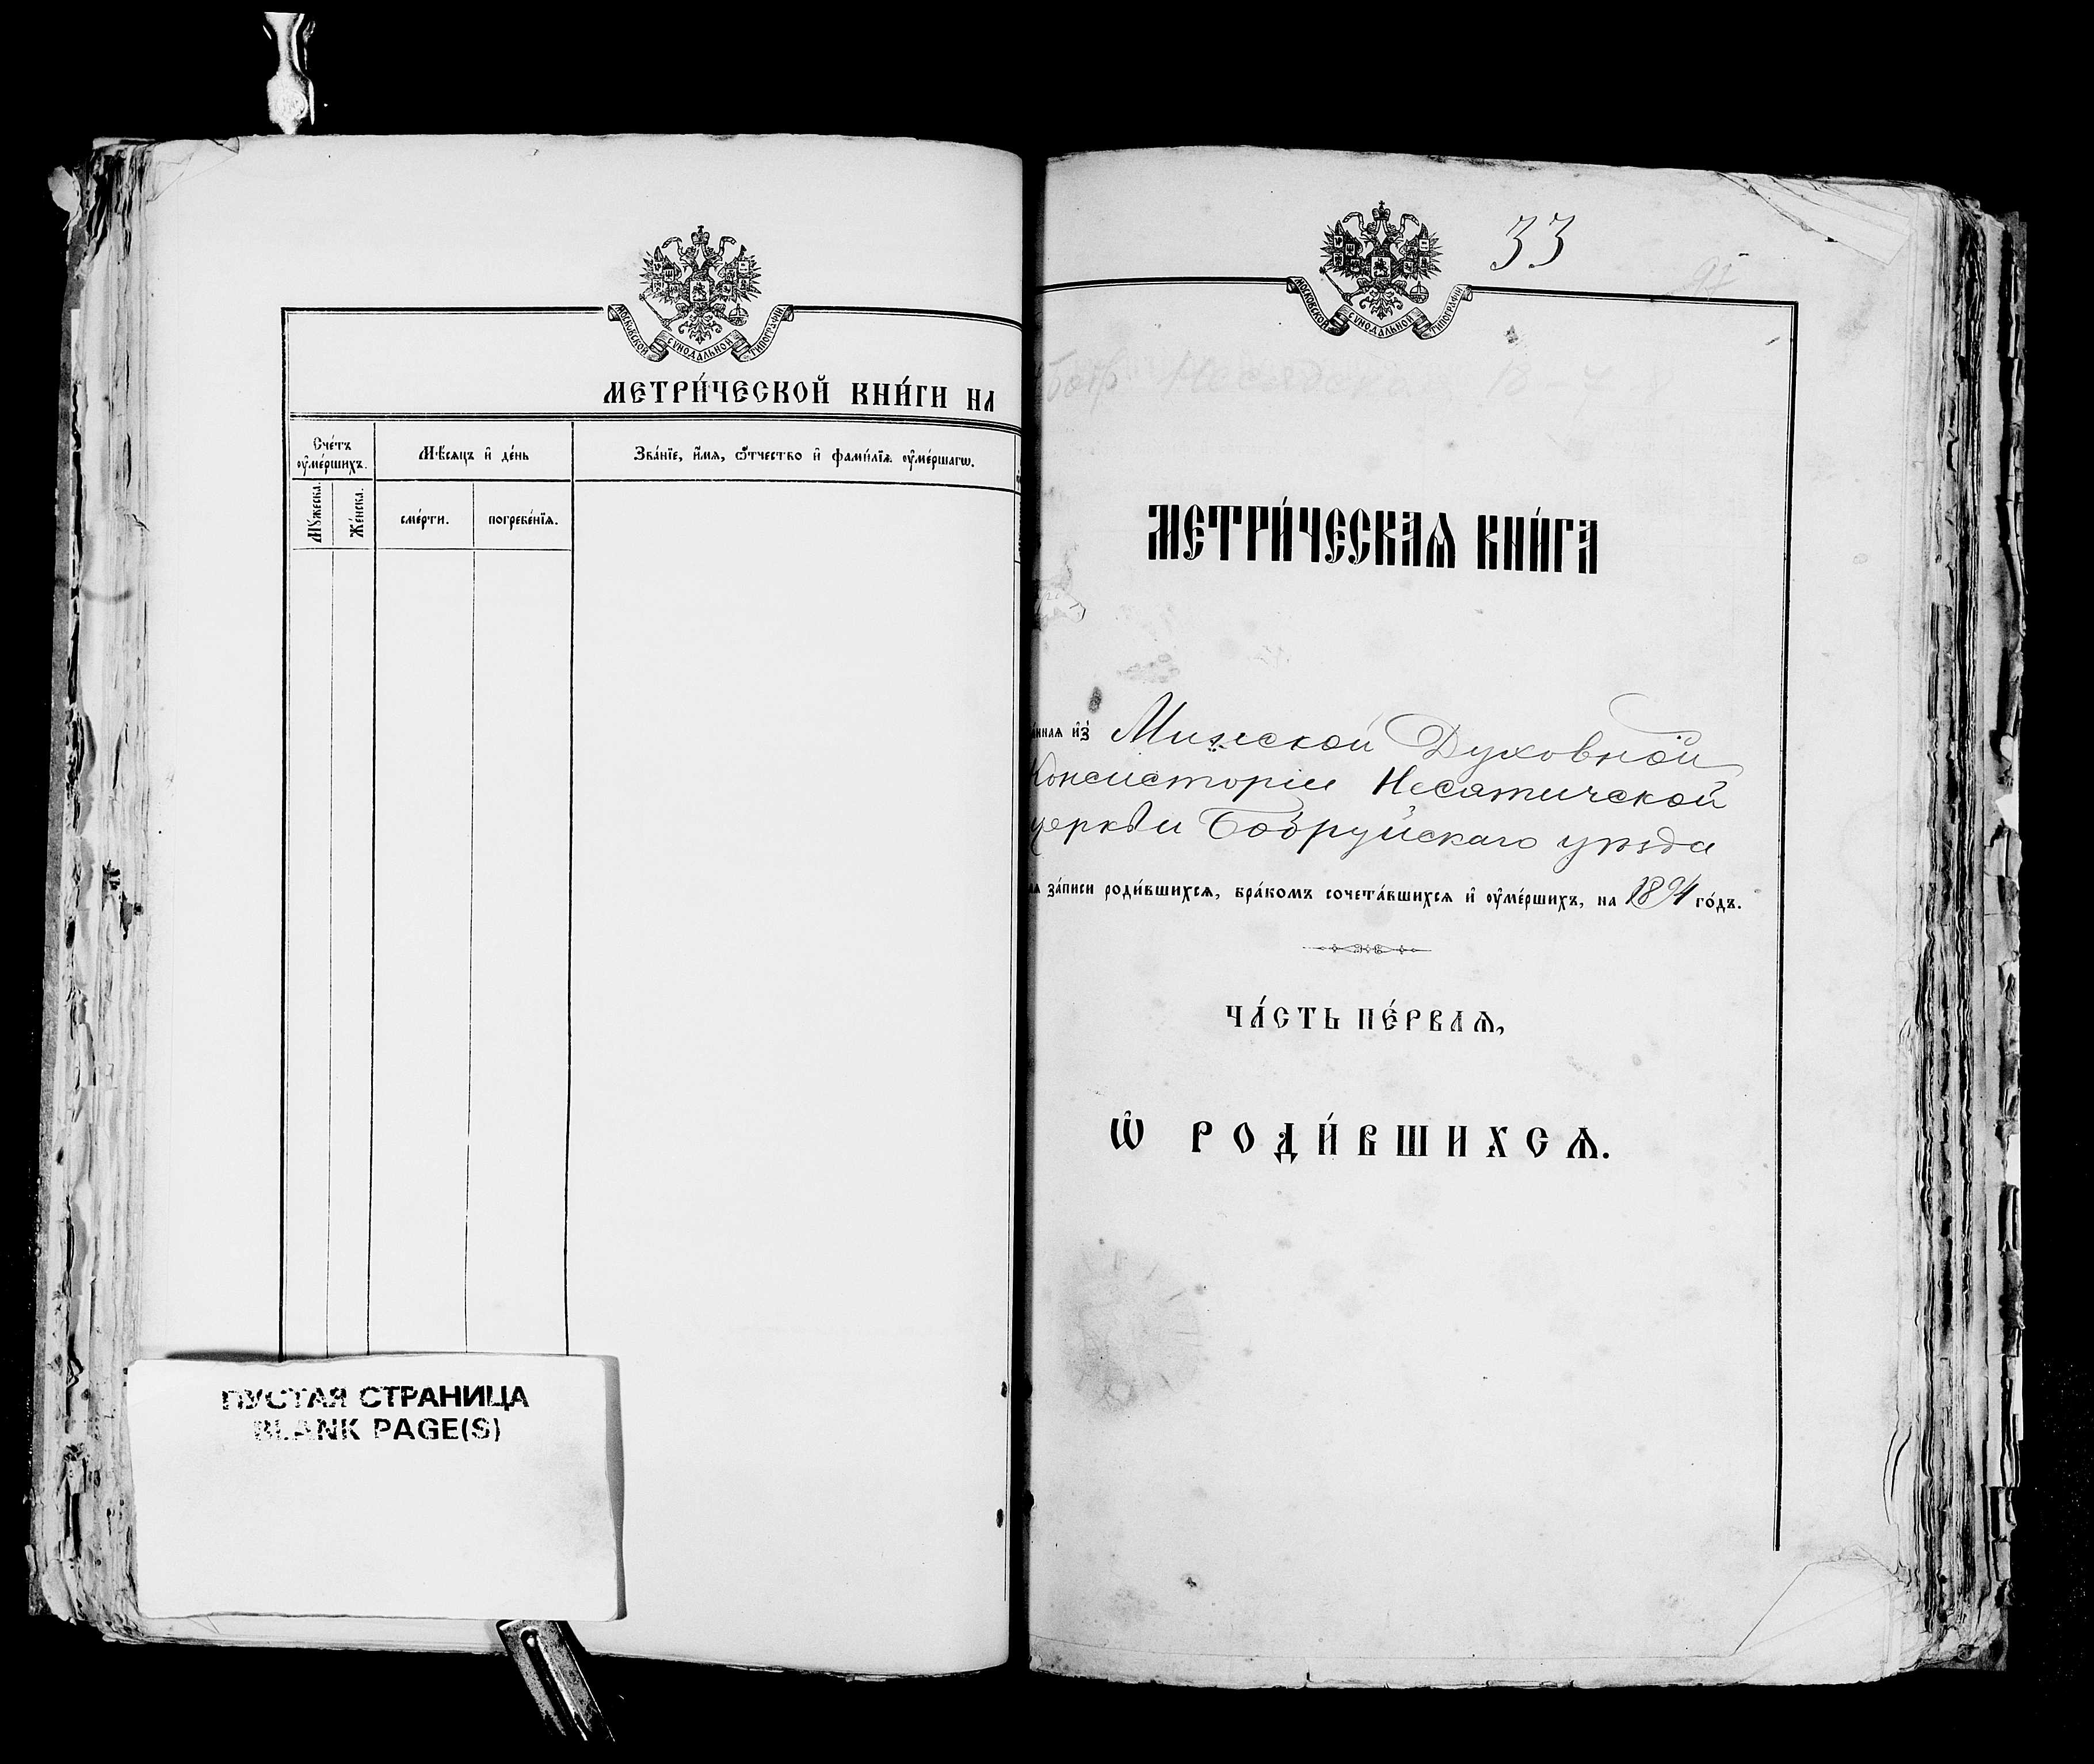 МОСКОВСКОЙ СѴНОДАЛЬНОЙ ТИПОГРАФІИ
МЕТРИ́ЧЕСКОЙ КНИ́ГИ НА
Сче́тъ ᲂу҆ме́ршихъ.
Мѣ́сяцъ и҆ де́нь
Зва́нїе, и҆́мя, ѻ҆́тчество и҆ фами́лїѧ ᲂу҆ме́ршагѡ.
Мꙋ́жеска.
Же́нска.
сме́рти.
погребе́нїѧ.
ПУСТАЯ СТРАНИЦА
BLANK PAGE(S)
33
МОСКОВСКОЙ СѴНОДАЛЬНОЙ ТИПОГРАФІИ
МЕТРИ́ЧЕСКАѦ КНИ́ГА
и҆з̾ Минской Духовной
Консисторіи Несятичской
церкви Бобруйскаго уѣзда
за́писи роди́вшихсѧ, бра́комъ сочета́вшихсѧ и҆ ᲂу҆ме́ршихъ, на 1894 го́дъ.
ЧА́СТЬ ПЕ́РВАѦ,
Ѡ҆ РОДИ́ВШИХСѦ.